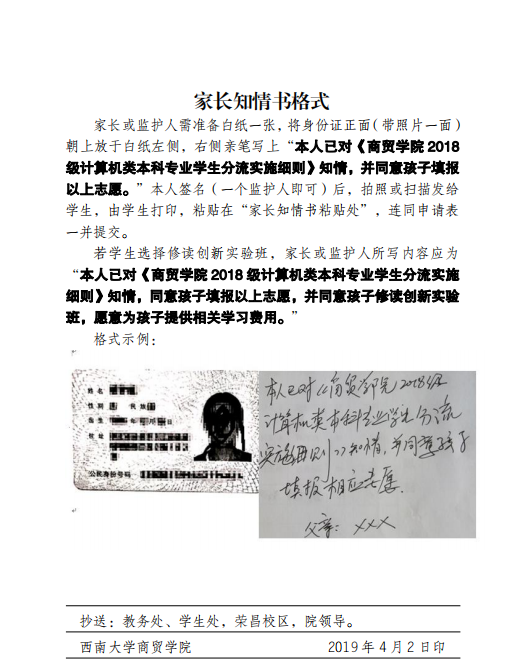 家长知情书格式
家长或监护人需准备白纸一张，将身份证正面（带照片一面）
朝上放于白纸左侧，右侧亲笔写上“本人已对《商贸学院 2018
级计算机类本科专业学生分流实施细则》知情，并同意孩子填报
以上志愿。”本人签名（一个监护人即可）后，拍照或扫描发给
学生，由学生打印，粘贴在“家长知情书粘贴处”，连同申请表
一并提交。
若学生选择修读创新实验班，家长或监护人所写内容应为
“本人已对《商贸学院 2018 级计算机类本科专业学生分流实施
细则》知情，同意孩子填报以上志愿，并同意孩子修读创新实验
班，愿意为孩子提供相关学习费用。”
格式示例：
姓名
性别 民族
出生
住址
公民身份号码
本人已对《商贸学院2018级
计算机类本科专业学生分流
实施细则》知情，并同意孩子
填报相应志愿.
父亲：×××
抄送：教务处、学生处，荣昌校区，院领导。
西南大学商贸学院 2019 年 4 月 2 日印